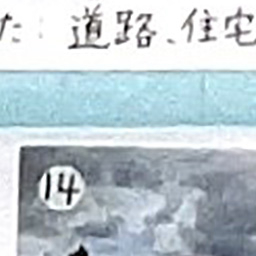 た：道路、住宅
14